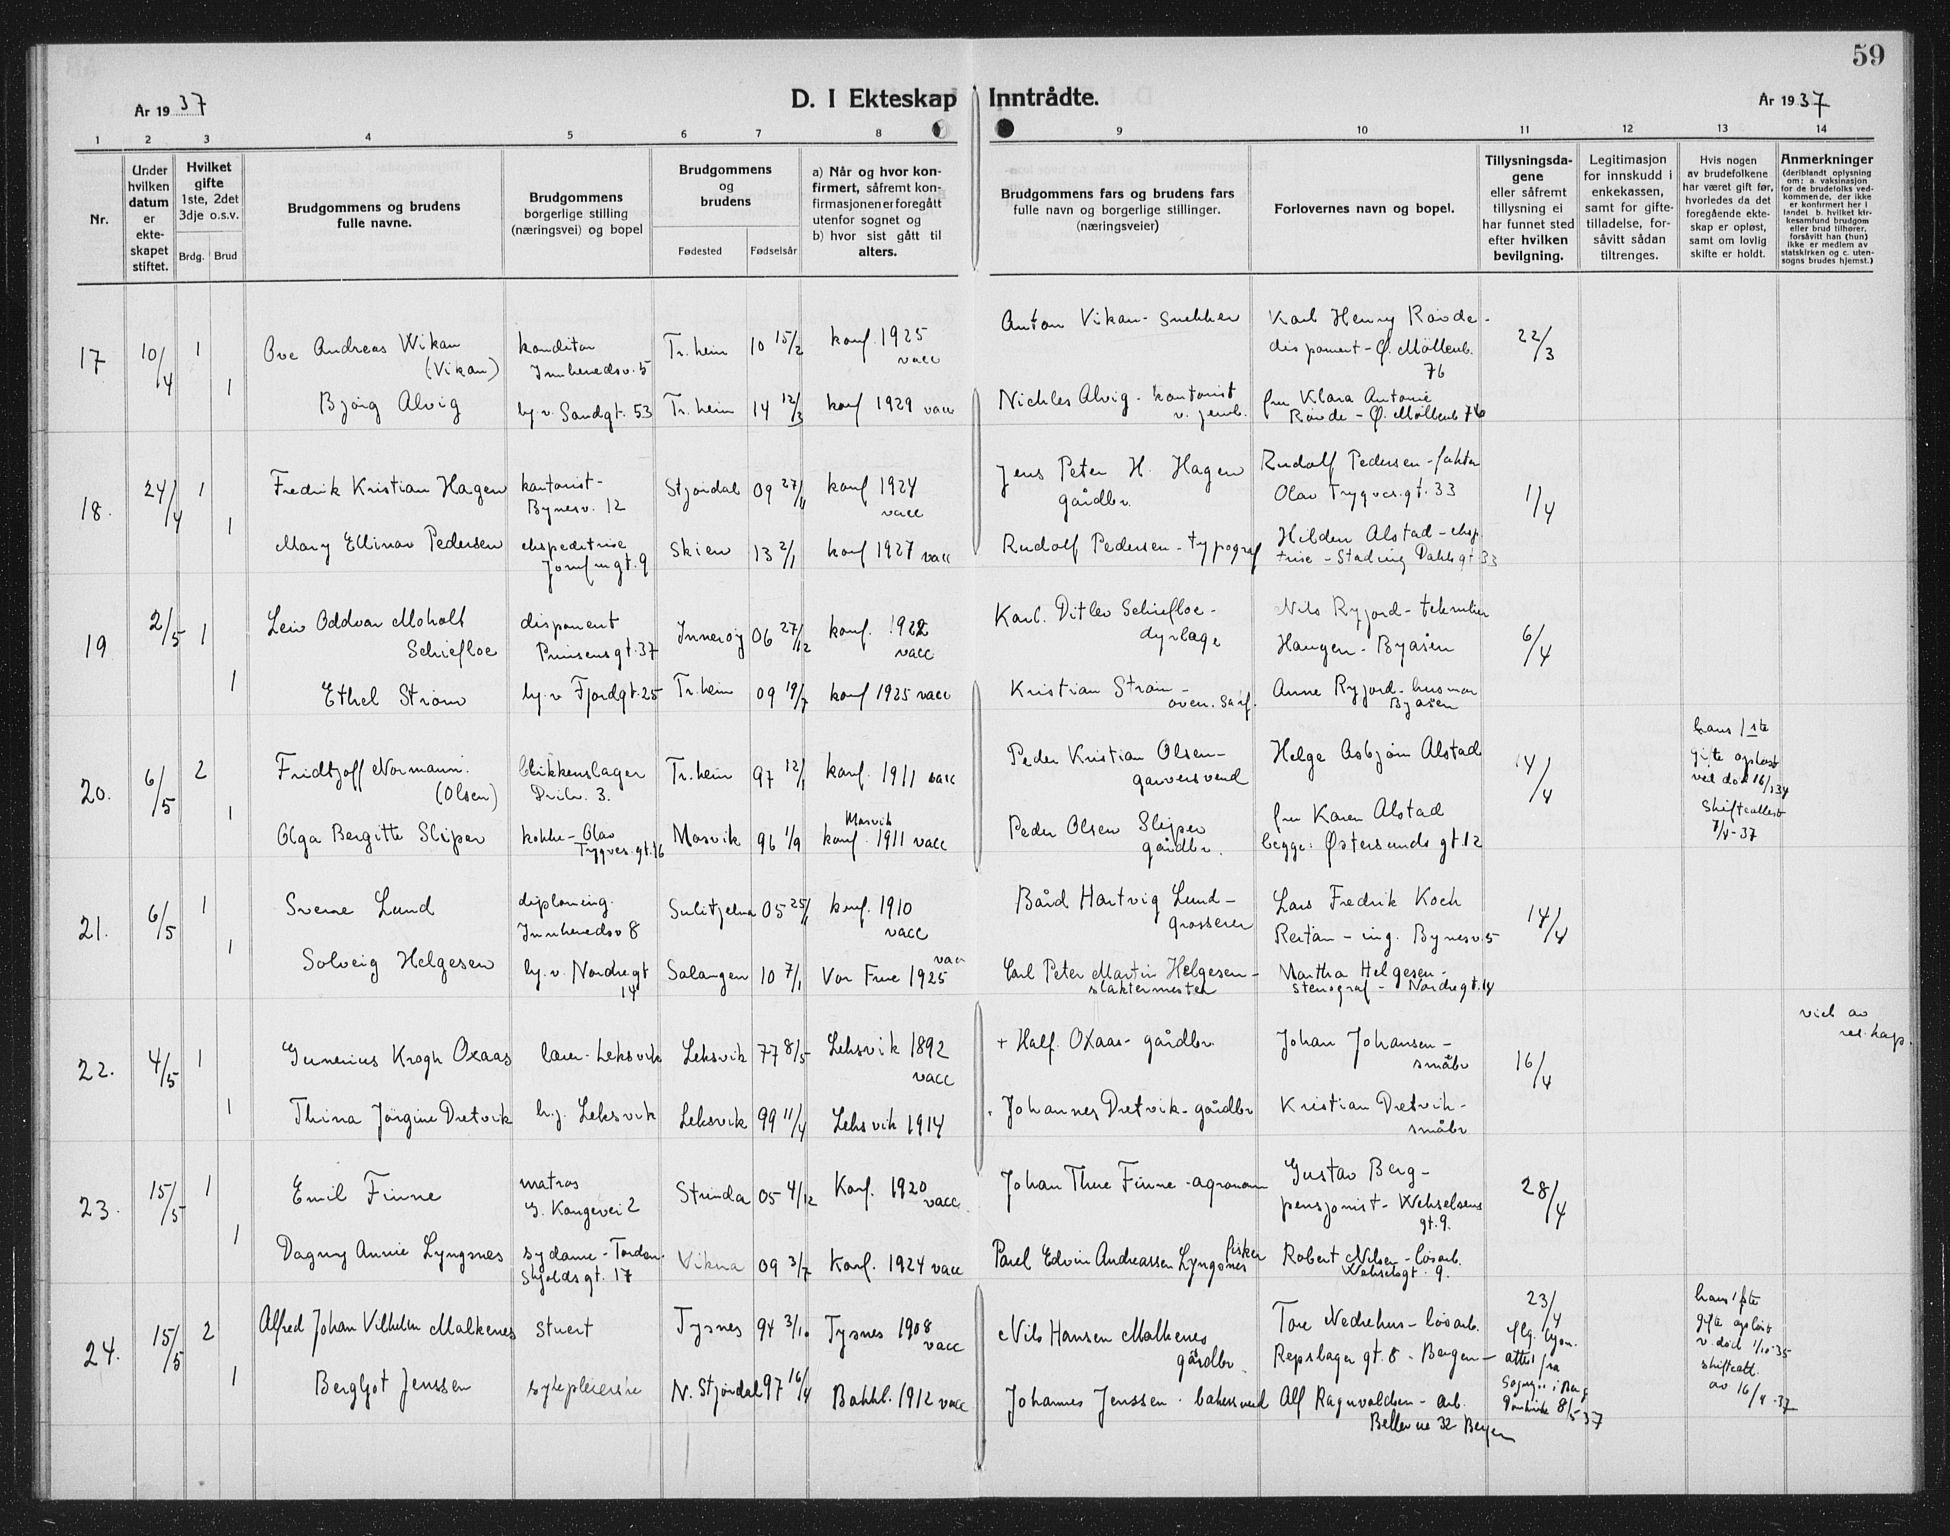 59
År 1937
D. I Ekteskap Inntrådte.
År 1937
1 2 3 4 5 6 7 8 9 10 11 12 13 14
Nr.
Under hvilken datum er ekteskapet stiftet.
Hvilket gifte 1ste, 2det 3dje o.s.v.
Brdg. Brud
Brudgommens og brudens fulle navne.
Brudgommens borgerlige stilling (næringsvei) og bopel
Brudgommens og brudens
Fødested Fødselsår
a) Når og hvor konfirmert, såfremt konfirmasjonen er foregått utenfor sognet og b) hvor sist gått til alters.
Brudgommens fars og brudens fars fulle navn og borgerlige stillinger. (næringsveier)
Forlovernes navn og bopel.
Tillysningsdagene eller såfremt tillysning ei har funnet sted efter hvilken bevilgning.
Legitimasjon for innskudd i enkekassen, samt for giftetilladelse, forsåvitt sådan tiltrenges.
Hvis nogen av brudefolkene har været gift før, hvorledes da det foregående ekteskap er opløst, samt om lovlig skifte er holdt.
Anmerkninger (deriblandt oplysning om: a. vaksinasjon for de brudefolks vedkommende, der ikke er konfirmert her i landet b. hvilket kirkesamfund brudgom eller brud tilhører, forsåvitt han (hun) ikke er medlem av statskirken og c. utensogns brudes hjemst.)
17 10/4 1 Ove Andreas Wikan (Vikan) konditor Innheredsv. 5 Tr.heim 10 15/2 konf. 1925 vacc Anton Vikan - snekker Karl Henry Røvde - disponent - Ø. Møllenb. 76 22/3
1 Bjørg Alvig hj. v. Sandgt. 53 Tr.heim 14 12/3 konf 1929 vacc Nichles Alvig - kontorist v. jernb. fru Klara Antonie Røvde - Ø. Møllenb 76
18. 24/4 1 Fredrik Kristian Hagen kontorist - Bynesv. 12 Stjørdal 09 27/11 konf 1924 vacc Jens Peter H. Hagen gårdbr. Rudolf Pedersen - faktor Olav Trygves.gt. 33 1/4
1 Mary Ellinor Pedersen ekspeditrise gt. 9 Skien 13 2/1 konf 1927 vacc Rudolf Pedersen - typograf Alstad - eksp. trise - Dahls gt. 33
19 2/5 1 Leiv Oddvar Moholt Schiefloe disponent Prinsens gt. 37 Inderøy 06 27/12 konf. 1922 vacc Karl Ditlev Schiefloe - dyrlæge Nils Ryjord - tekniker Haugen - Byåsen 6/4
1 Ethel Strøm hj. v Fjordgt. 25 Tr.heim 09 19/7 konf 1925 vacc Kristian Strøm - Anne Ryjord - husmor Byåsen
20. 6/5 2 Fridtjoff Normann (Olsen) blikkenslager 3. Tr.heim 97 12/1 konf. 1911 vacc Peder Kristian Olsen - garversvend Helge Asbjørn Alstad 14/4 hans 1ste gifte opløst ved død 16/1 34 Skifteattest 7/4-37
1 Olga Bergitte Sliper kokke - Olav Trygves. gt. 16 Mosvik 96 1/9 Mosvik konf. 1911 vacc Peder Olsen Slipper gårdbr. fru Karen Alstad begge: Østersunds gt. 12
21. 6/5 1 Sverre Lund diploming. Innheredsv 8 Sulitjelma 05 25/11 konf. 1910 vacc Bård Hartvig Lund - grosserer Lars Fredrik Koch Reitan - ing. Bynesv. 5 14/4
1 Solveig Helgesen hj. v. Nordregt 14 Salangen 10 7/1 Vor Frue 1925 vacc Carl Peter Martin Helgesen - slaktermester Martha Helgesen - stenograf - Nordregt. 14
22. 4/5 1 Gunerius Krogh Oxaas lærer - Leksvik Leksvik 77 8/5 Leksvik 1892 vacc + Half. Oxaas - gårdbr. Johan Johansen - småbr 16/4 viet av res. kap.
1 Thina Jørgine Dretvik hj. Leksvik Leksvik 99 11/4 Leksvik 1914 Johannes Dretvik - gårdbr Kristian Dretvik - småbr
23. 15/5 1 Emil Finne matros G. Kongevei 2 Strinda 05 4/12 Konf. 1920 vacc. Johan Finne - agronom Gustav Berg - pensjonist - Wehselsens gt. 9. 28/4
1 Dagny Annie Lyngsnes sydame - Tordenskjolds gt. 17 Vikna 09 3/7 Konf. 1924 vacc Edvin Andreassen Lyngsnes fisker Robert Nilsen - løsarb. Wehselsgt. 9.
24. 15/5 2 Alfred Johan Vilhelm Malkenes Stuert Tysnes 94 3/10 Tysnes 1908 vacc Nils Hansen Malkenes gårdbr. Tore Nedrehus - løsarb. Repslager gt. 8 - Bergen - 23/4 flg. lysn. attest fra 8/5 37 hans 1ste gifte opløst v. død 1/10-35 skifteatt. av 16/4-37
1 Bergljot Jenssen sykepleierske N. Stjørdal 97 16/4 Bakkl. 1912 vacc Johannes Jenssen - bakersvend Alf Ragnvaldsen - arb. Bellevue 32 Bergen